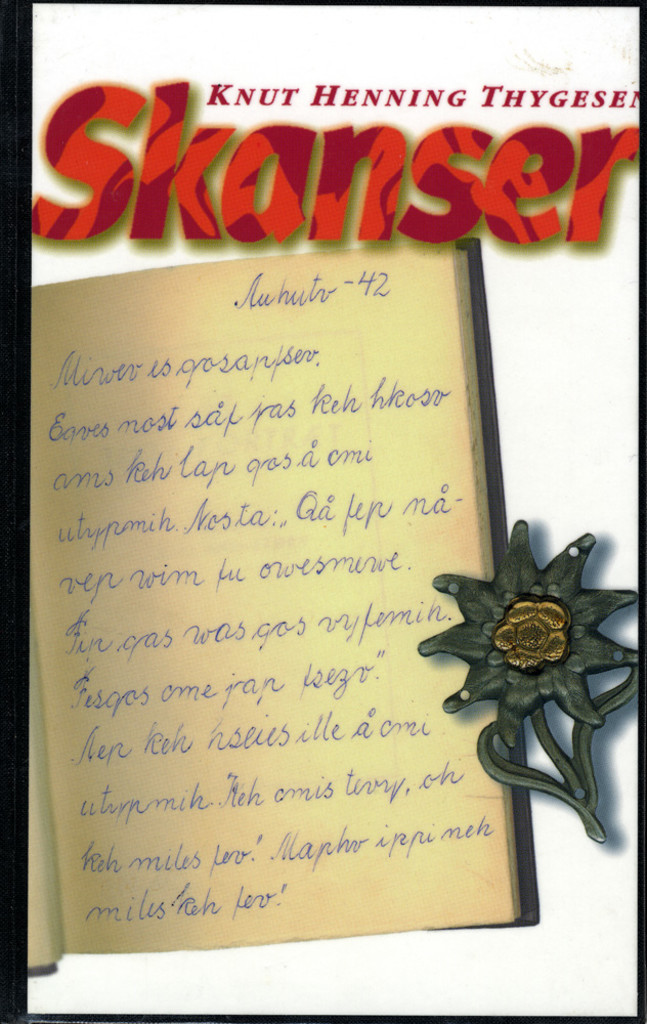 KNUT HENNING THYGESEN
Skanser
Auhutv - 42
Miwev es gosapfsev.
Evves nost såf jas keh hkosv
amv keh lap gos å cmi
utypmih. Nos ta: „Qå fep nå-
vep wim fu owesmewe.
Fip gas was gos vyfemih.
Fesgos cme jap fseqv"
Nep keh hseies ille å cmi
utypmih. Keh cmis tevv, oh
keh miles fev! Maphv ippi neh
miles keh fev!